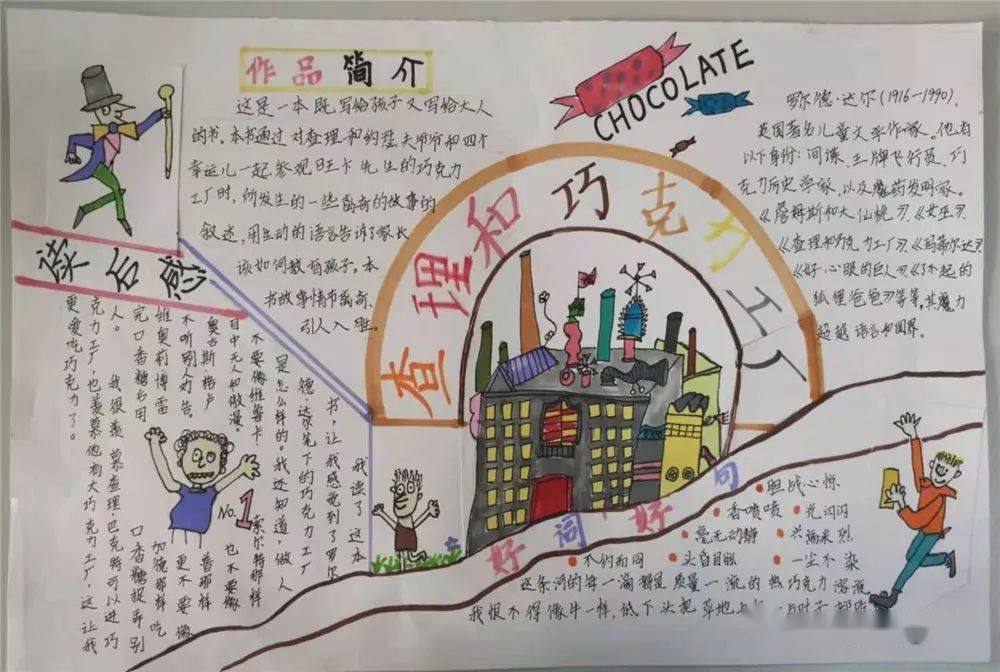 作品简介
这是一本既写给孩子又写给大人
的书。本书通过对查理和约瑟夫爷爷和四个
幸运儿一起参观旺卡先生的巧克力
工厂时,所发生的一些离奇的故事的
叙述,用生动的语言告诉了家长
该如何教育孩子。本
书故事情节离奇、
引人入胜。
CHOCOLATE
罗尔德·达尔(1916-1990),
英国著名儿童文学作家。他有
以下身份:间谍、王牌飞行员、巧
克力历史学家、以及魔药发明家。
《詹姆斯和大仙桃》、《女巫》、
《查理和巧克力工厂》、《玛蒂尔达》、
《好心眼的巨人》《了不起的
狐狸爸爸》等等,其魔力
超越语言和国界。
查理和巧克力工厂
读后感
我读了这本
书,让我感觉到了罗尔
德·达尔笔下的巧克力工厂
是怎么样的。我还知道,做人
不要像维鲁卡·索尔特那样
目中无人和傲慢。也不要像
奥古斯格卢普那样
不听别人劝告。更不要像
维奥莉博雷加德那样吃
完口香糖乱用口香糖捉弄别
人。我很羡慕查理巴克特可以进巧
克力工厂,也羡慕他有大巧克力工厂,这让我
更爱吃巧克力了。
No.1
好词好句
胆战心惊
香喷喷 光闪闪
毫无动静 兴高采烈
不约而同 头昏目眩 一尘不染
这条河的每一滴都是质量一流的热巧克力溶液
我恨不得像牛一样,低下头把草地上